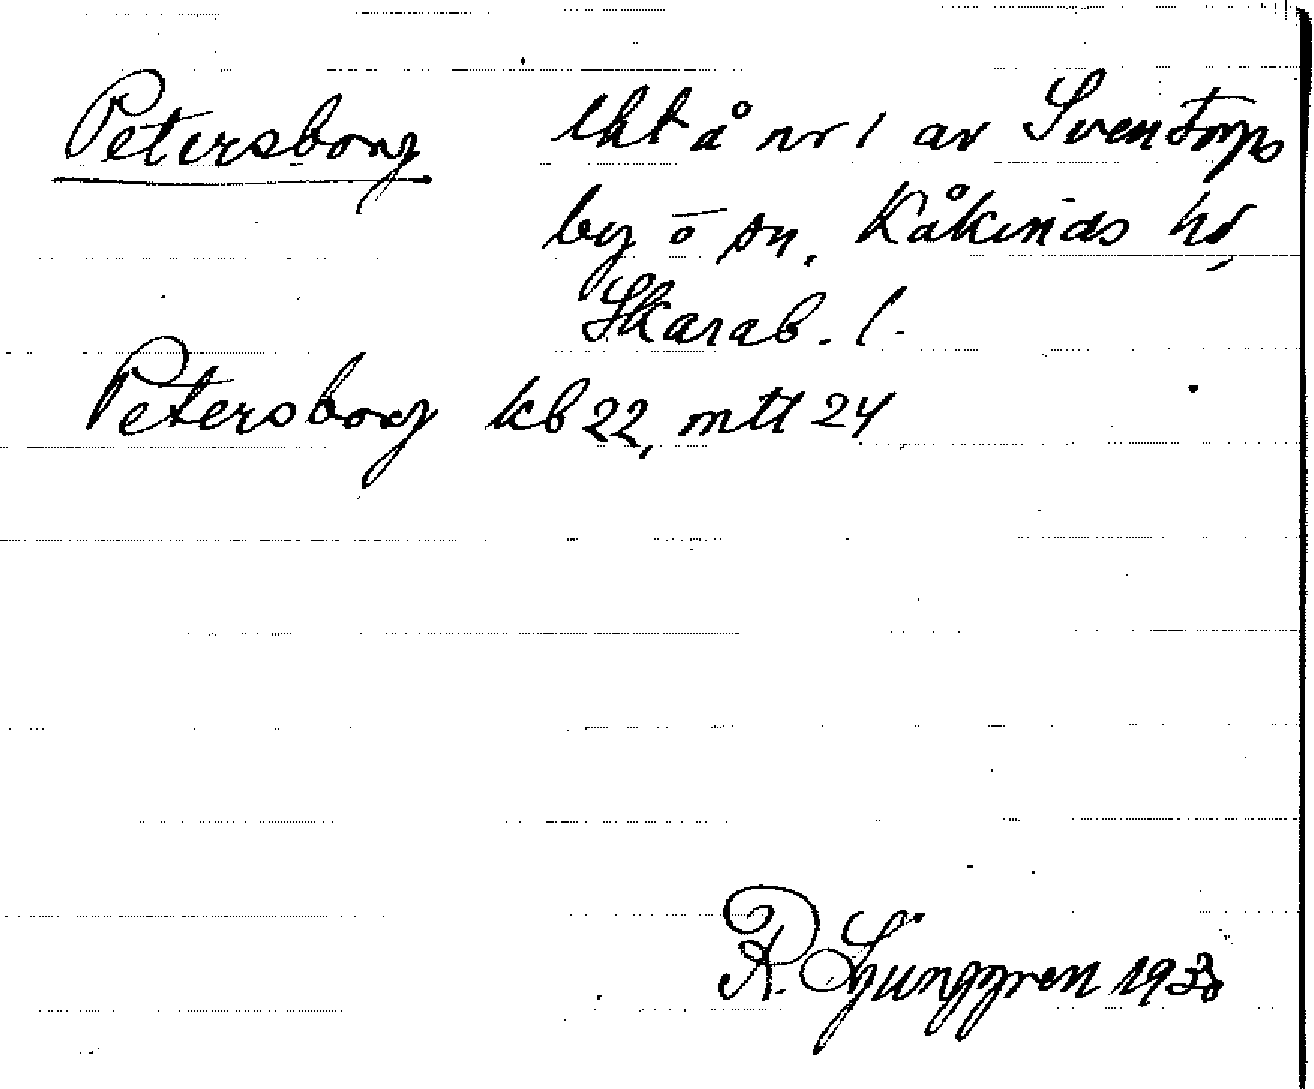 Petersborg lht å nr 1 av Sventorps
by o sn. Kåkinds hd,
Skarab. l.
Petersborg kb 22, mtl 24
R. Ljunggren